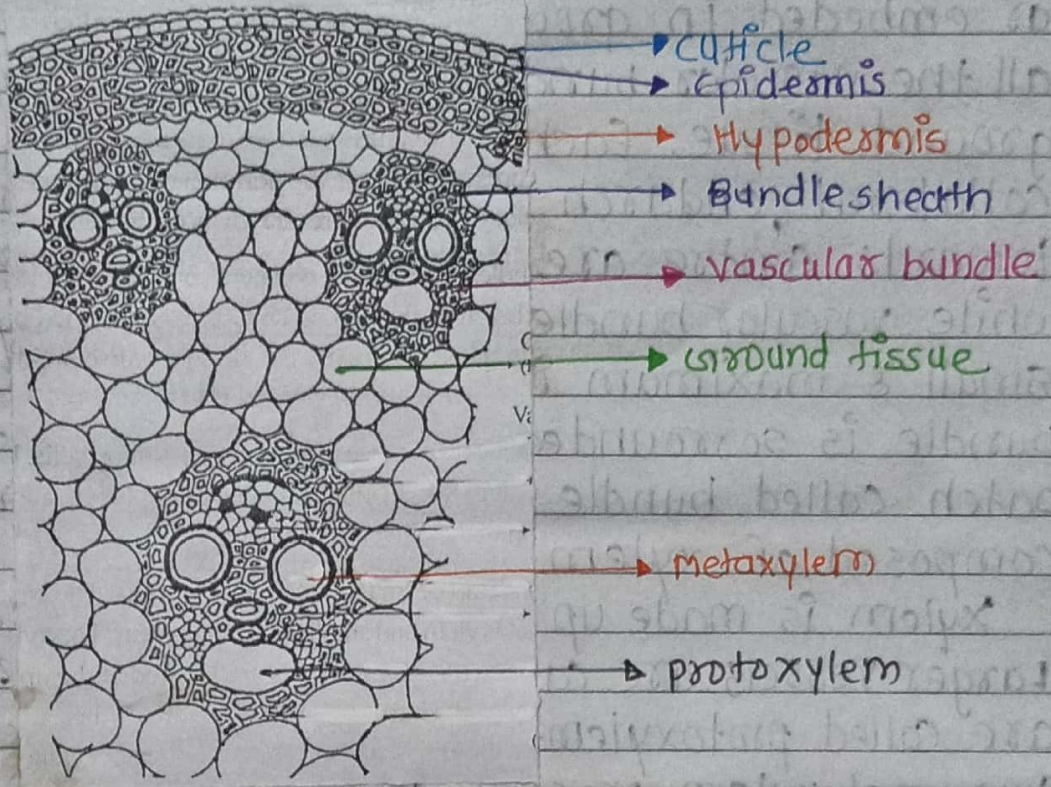 Cuticle
Epidermis
Hypodermis
Bundle sheath
vascular bundle
Ground tissue
Va
metaxylem
protoxylem